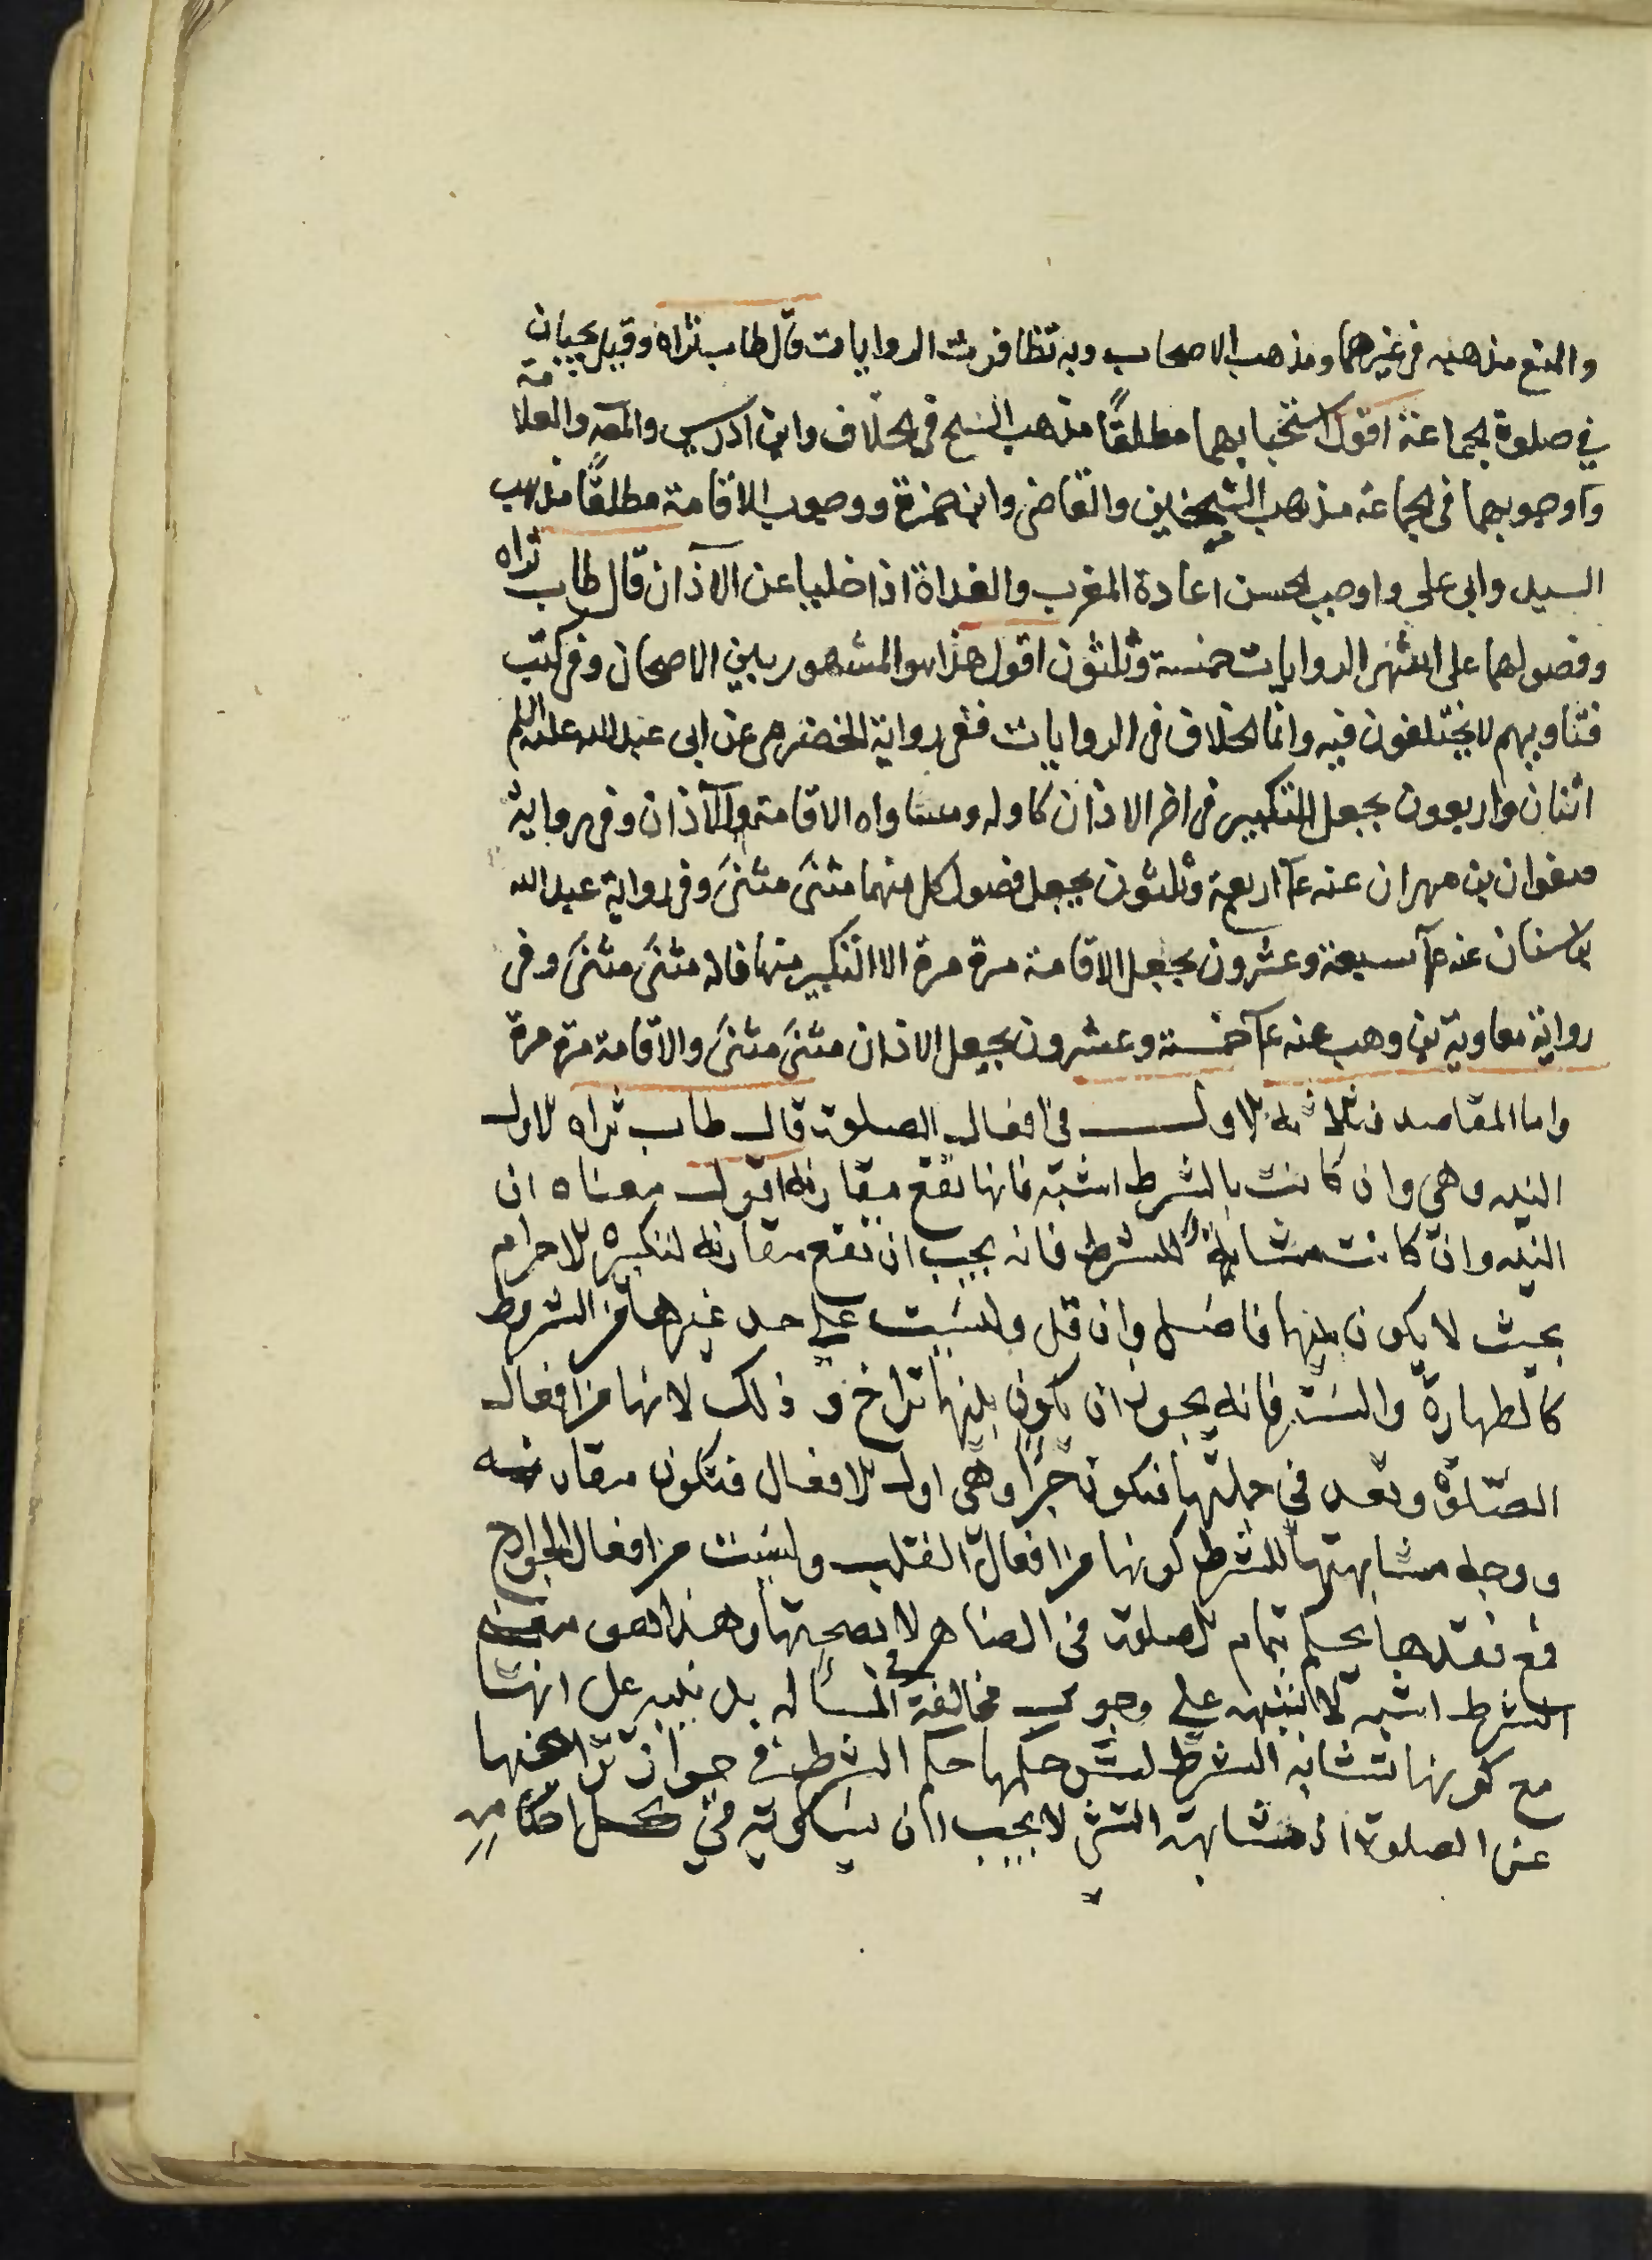 والمنع مذهبه في غيرهما ومذهب الاصحاب وبه تظافرت الروايات قال طاب ثراه وقيل يجبان
في صلوة الجماعة اقول استحبابهما مطلقًا مذهب الشيخ في الخلاف وابن ادريس والمص والعلامة
واوجوبهما في الجماعه مذهب الشيخين والقاضى وابن حمزة ووجوب الاقامة مطلقًا مذهب
السيد وابي على واوجب الحسن اعادة المغرب والغداة اذا خليا عن الآذان قال طاب ثراه
وفصولهما على اشهر الروايات خمسة وثلثون اقول هذا هو المشهور بين الاصحاب وفي كتب
فتاويهم لا يختلفون فيه وانما الخلاف في الروايات ففي رواية الحضرمى عن ابى عبد الله عليه السلم
اثنان واربعون بجعل التكبير في اخر الاذان كاوله ومساواه الاقامة والآذان وفي رواية
صفوان بن مهران عنه عم اربعة وثلثون بجعل فصول كل منهما مثنى مثنى وفي رواية عبد الله
بن سنان عنه عم سبعة وعشرون بجعل الاقامة مرة مرة الا التكبير منها فانه مثنى مثنى وفي
رواية معاوية بن وهب عنه عم خمسة وعشرون بجعل الاذان مثنى مثنى والاقامة مرة مرة
واما المقاصد فثلاثه الاول في افعال الصلوة قال طاب ثراه الاول
النيه وهي وان كانت بالشرط اشبه فانها تقع مقارنه اقول معناه ان
النيه وان كانت مشابهة للشرط فانه يجب ان تقع مقارنه لتكبيره الاحرام
بحيث لا يكون بينها فاصل وان قل وليست على حد غيرها من الشروط
كالطهارة والستر فانه يجوز ان يكون بينهما تراخ و ذلك لانها من افعال
الصلوة وتعد في جملتها فتكون جزأ وهي اول الافعال فتكون مقارنه
ووجه مشابهتها للشرط كونها من افعال القلب وليست من افعال الجوارح
فمع فقدها يحكم بتمام الصلوة في الضاهر لا بصحتها وهذا هو معنى
الشرط اشبه لا تنبيه على وجوب مخالفة في المساله بل نبه على انها
مع كونها تشابه الشرط ليس حكمها حكم الشرط في جواز تراخيها
عن الصلوة اذ مشابهة الشئ لا يجب ان يساويه في كل احكامه